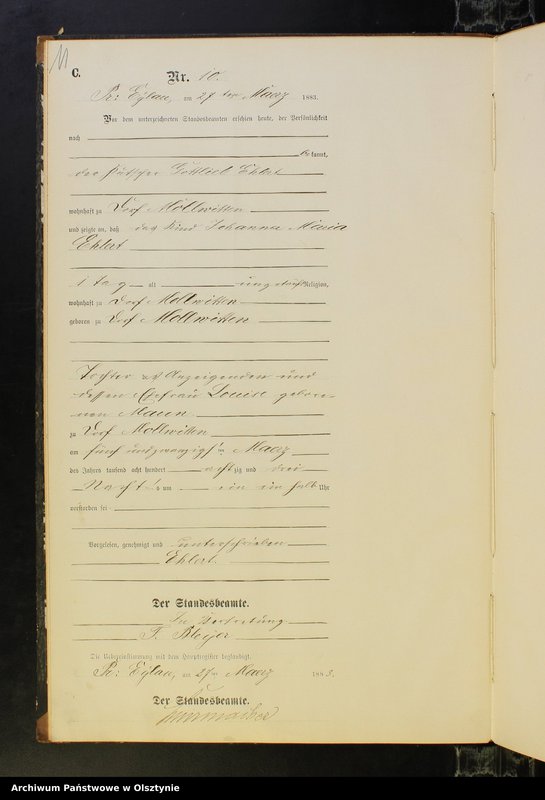 11
C.
Nr. 10.
Pr: Eylau, am 27 ten Maerz 1883.
Vor dem unterzeichneten Standesbeamten erschien heute, der Persönlichkeit
nach
be kannt,
der Gottlieb Ehlert
wohnhaft zu Dorf Mollwitten
und zeigte an, daß das Kind Johanna Maria
Ehlert
1 tag alt ungetauft Religion,
wohnhaft zu Dorf Mollwitten
geboren zu Dorf Mollwitten
Tochter des Anzeigenden und
dessen Ehefrau Louise gebore-
nen
zu Dorf Mollwitten
am fünf und zwanzigst en Maerz
des Jahres tausend acht hundert acht zig und drei
Nacht s um ein ein halb Uhr
verstorben sei
Vorgelesen, genehmigt und unterschrieben
Ehlert.
Der Standesbeamte.
In Vertretung
Die Uebereinstimmung mit dem Hauptregister beglaubigt.
Pr: Eylau, am 27 ten Maerz 1883.
Der Standesbeamte.
Archiwum Państwowe w Olsztynie